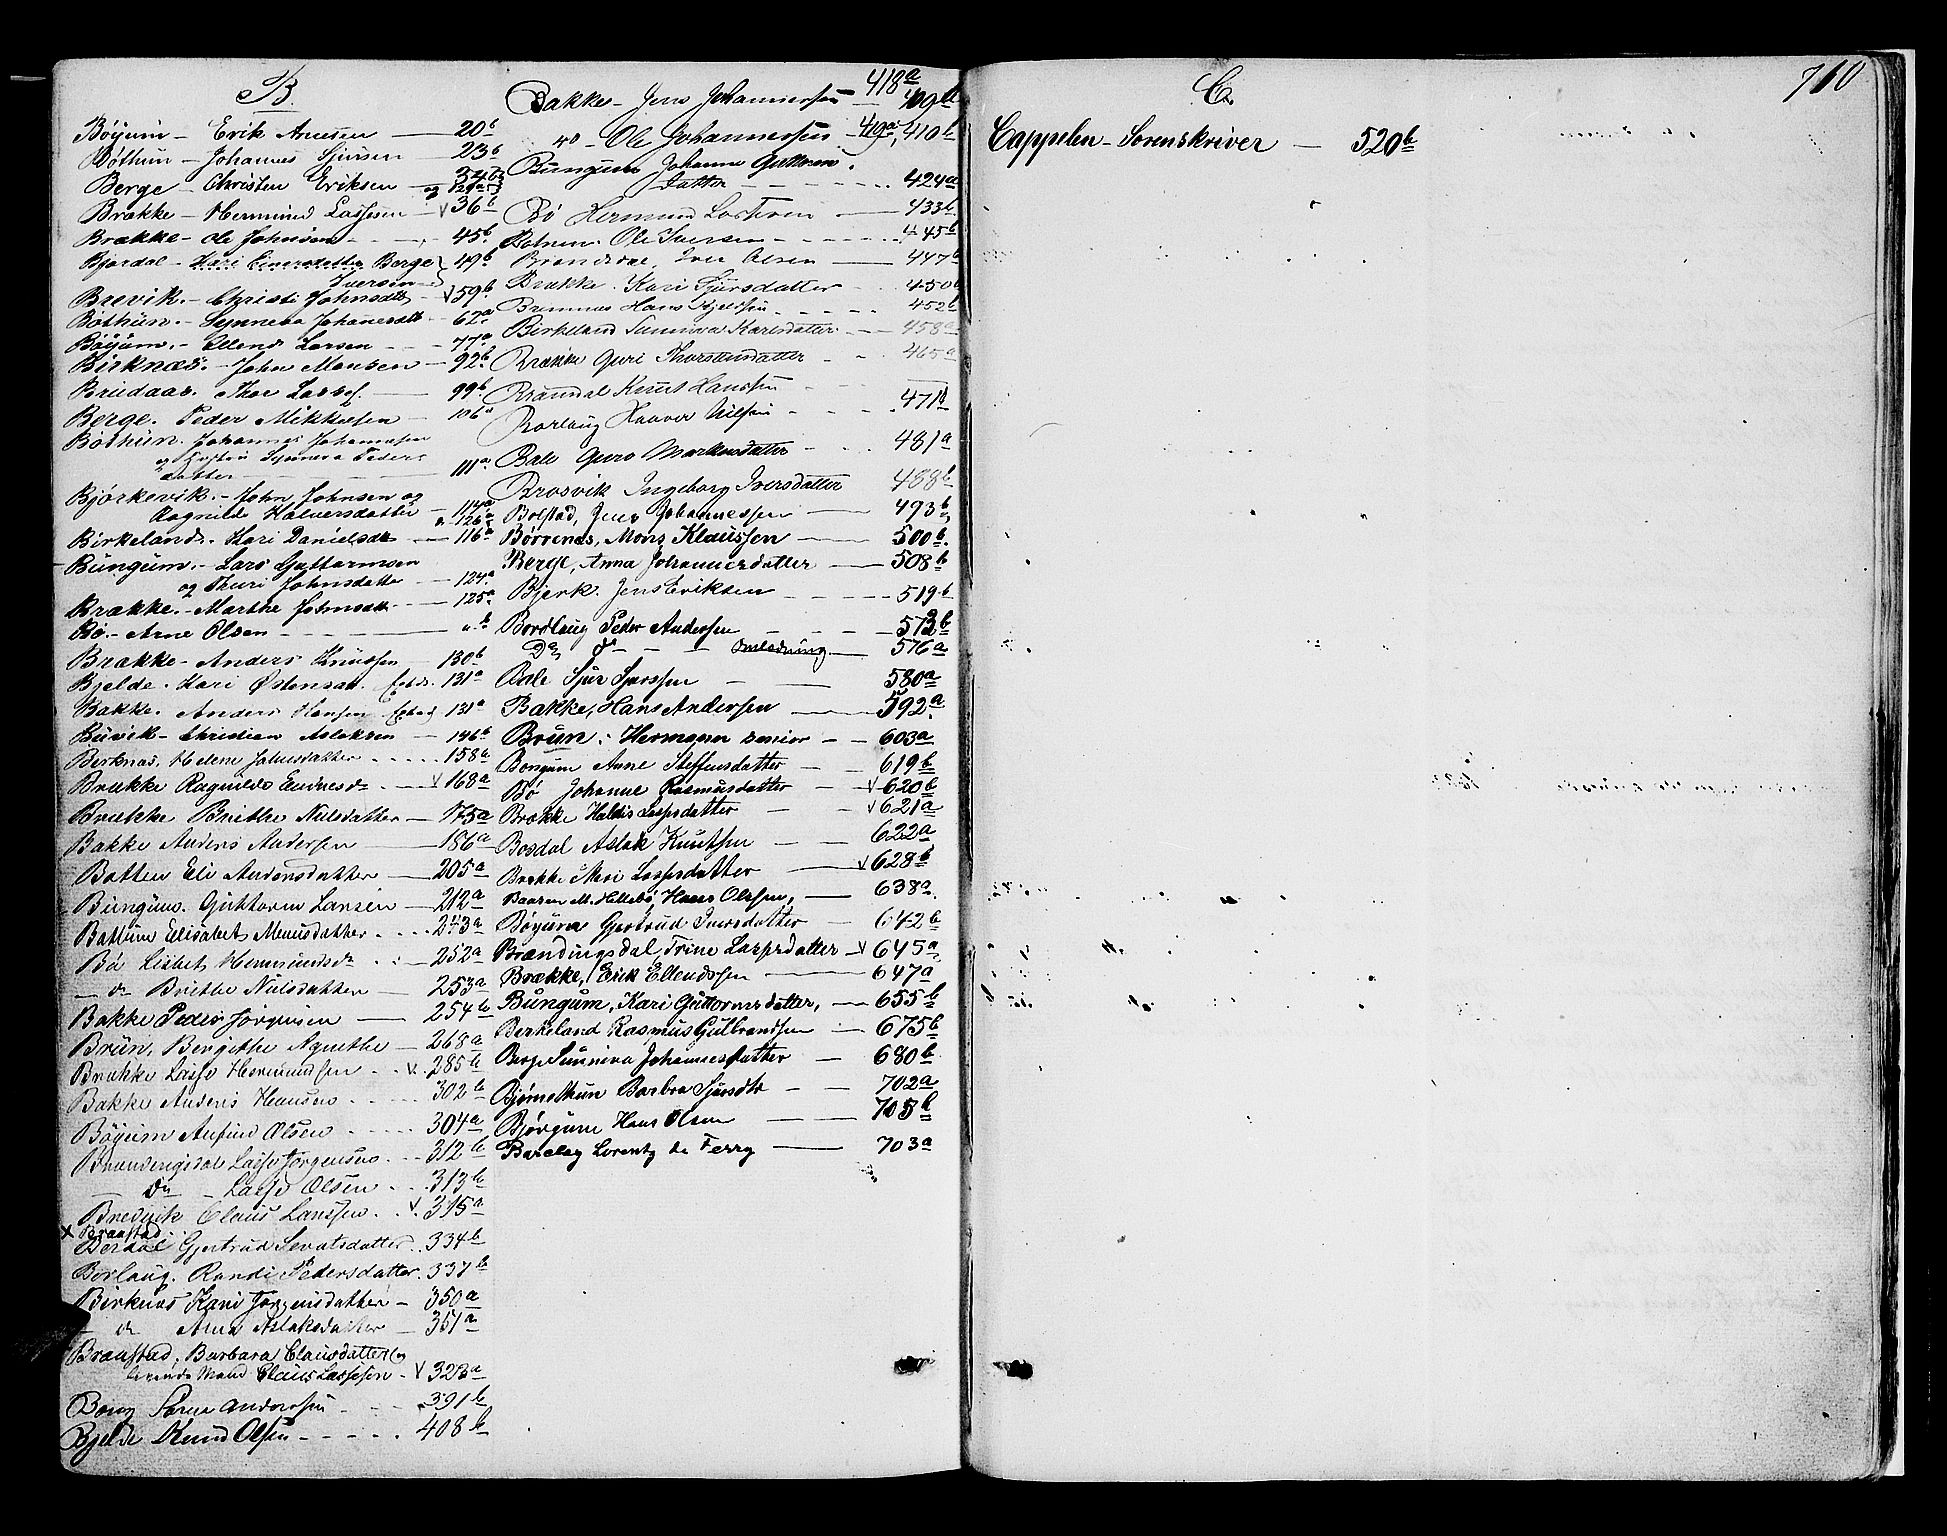 B.
Bøyum - Erik Arnesen - 20b
Bøthun - Johannes Sjursen - 23b
Berge - Christen Eriksen - 34b og 121a
Brække - Hermund Lassesen - √ 36b
Brække - Ole Johnsen - 45b
Bjordal - Kari Einersdatter Berge 49b
Iversen
Brevik - Christi Johnsdtr - √ 59b
Bøthun - Synneva Johanesdtr 62a
Bøyum - Ellend Larsen - 77a
Birknæs - John Monsen - 92b
Brudaas. Thor - 99b
Berge. Peder Mikkelsen - 106a
Bøthun. Johannes Johannesen
og Hustru Synneva Peders
datter - 111a
Bjørkevik - John Johnsen og
Ragnilde Halversdatter - 114a
o. 126a
Birkeland - Kari Danielsdtr - 116a
Bungum - Lars Guttormsen
og Thuri Johnsdatter - 124a
Brække - Marthe Johnsdtr - 125a
Bø - Arne Olsen - " b
Brække - Anders Knudsen - 130b
Bjelde. Kari Østensdtr. 131a
Bakke. Anders Hansen 131a
Buvik - Christian Aslaksen - 146b
Birknæs, Helene Johnsdatter 158b
Brække Ragnilde Endresdr √ 168a
Brække Brithe Nilsdatter - 175a
Bakke Anders Andersen - 186a
Botten Eli Andersdatter - 205a
Bungum. Guttorm Larsen - 212a
Bøttum Elisabet Monsdatter 243a
Bø Lisbet Hermundsdr 252a
- do Brithe Nilsdatter - 253a
Bakke Peder Jørgensen - 254b
Brun, Bergithe Agnethe - 268a
Brække Lasse Hermundsen √ 285b
Bakke Anders Hansen 302b
Bøyum Anfind Olsen 304a
Brændingsdal Lasse Jørgensen 312b
- do - Lasse Olsen 313b
Bredvik Claus Larssen √ 315a
x Braastad
Berdal Gjertrud Sevatsdatter 334b
Borlaug. Randi Pedersdatter 337b
Birknæs Kari Jørgensdatter - 350a
- do Anna Aslaksdatter - 351a
Braastad, Barbara Clausdatter og
levende Mand Claus Lassesen √ 323a
Borg Søren Anderssen 391b
Bjelde Knud Olsen 408b
418a
Bakke - Jens Johannessen - 409b
do - Ole Johannessen - 419a, 410b
Bungum Johanne Guttorm
datter 424a
Bø Hermund Lassesen - 433b
Botnen. Ole Iversen 445b
Brandsdal, Iver Olsen - 447b
Brække. Kari Sjursdatter 450b
Bremnes Hans 452b
Birkeland Sunniva Karlsdatter 458a
Brække Guri Thorstensdatter 465a
Brandal Knut Hanssen -
Borlaug Haaver Nilsen 471b
Bale Guro Markusdatter 481a
Brosvik Ingeborg Iversdatter 488b
Bolstad, Jens Johannessen - 493b
Børrenes, Mons Klaussen - 500b
Berge, Anna Johannesdatter - 508b
Bjerk. Jens Eriksen 519b
Bordlaug Peder Andersen 573b
Do do - - Omlodning 576a
Bale Sjur Sjursen - 580a
Bakke, Hans Andersen - 592a
Brun, Hermann senior - - 603a
Bongum Anne Steffensdatter - 619b
Bø Johanne Rasmusdatter √ 620b
Brække Haldis Lassesdatter √ 621a
Bosdal Aslak Knutsen - 622a
Brække Mari Lassesdatter √ 628b
Baarsen M. Hillebø, Hans Olssen, - 638a
Bøyum Gjertrud Iversdatter 642b
Brændingsdal, Trine Lassesdatter √ 645a
Brække, Erik Ellendssen - 647a
Bungum, Kari Guttormsdatter, - 655b
Berkeland Rasmus Gulbrandsen - 675b
Berge Sunniva Johannesdatter - 680b
Bjørnethun Barbra Sjursdtr - 702a
Bjørgum Hans Olsen - 705b
Barclay Lorentz de Ferry - 703a
C.
710
Cappelen - Sorenskriver - 520b